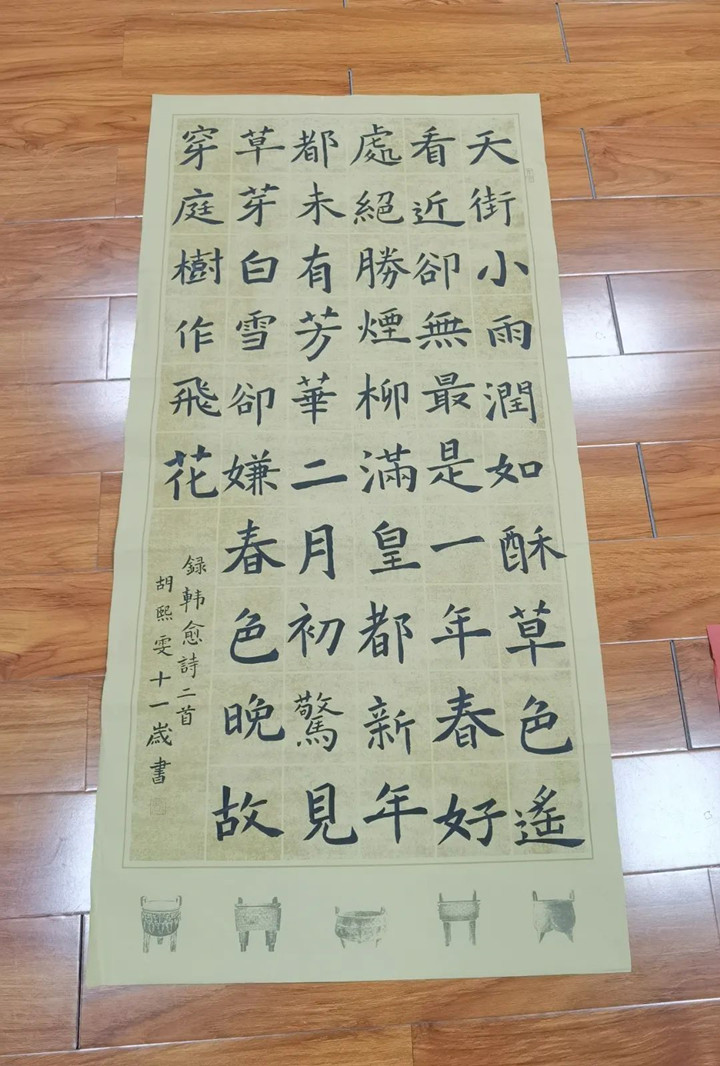 天街小雨潤如酥草色遙
看近卻無最是一年春好
處絕勝煙柳滿皇都新年
都未有芳華二月初驚見
草芽白雪卻嫌春色晚故
穿庭樹作飛花
録韩愈詩二首
胡熙雯十一歲書